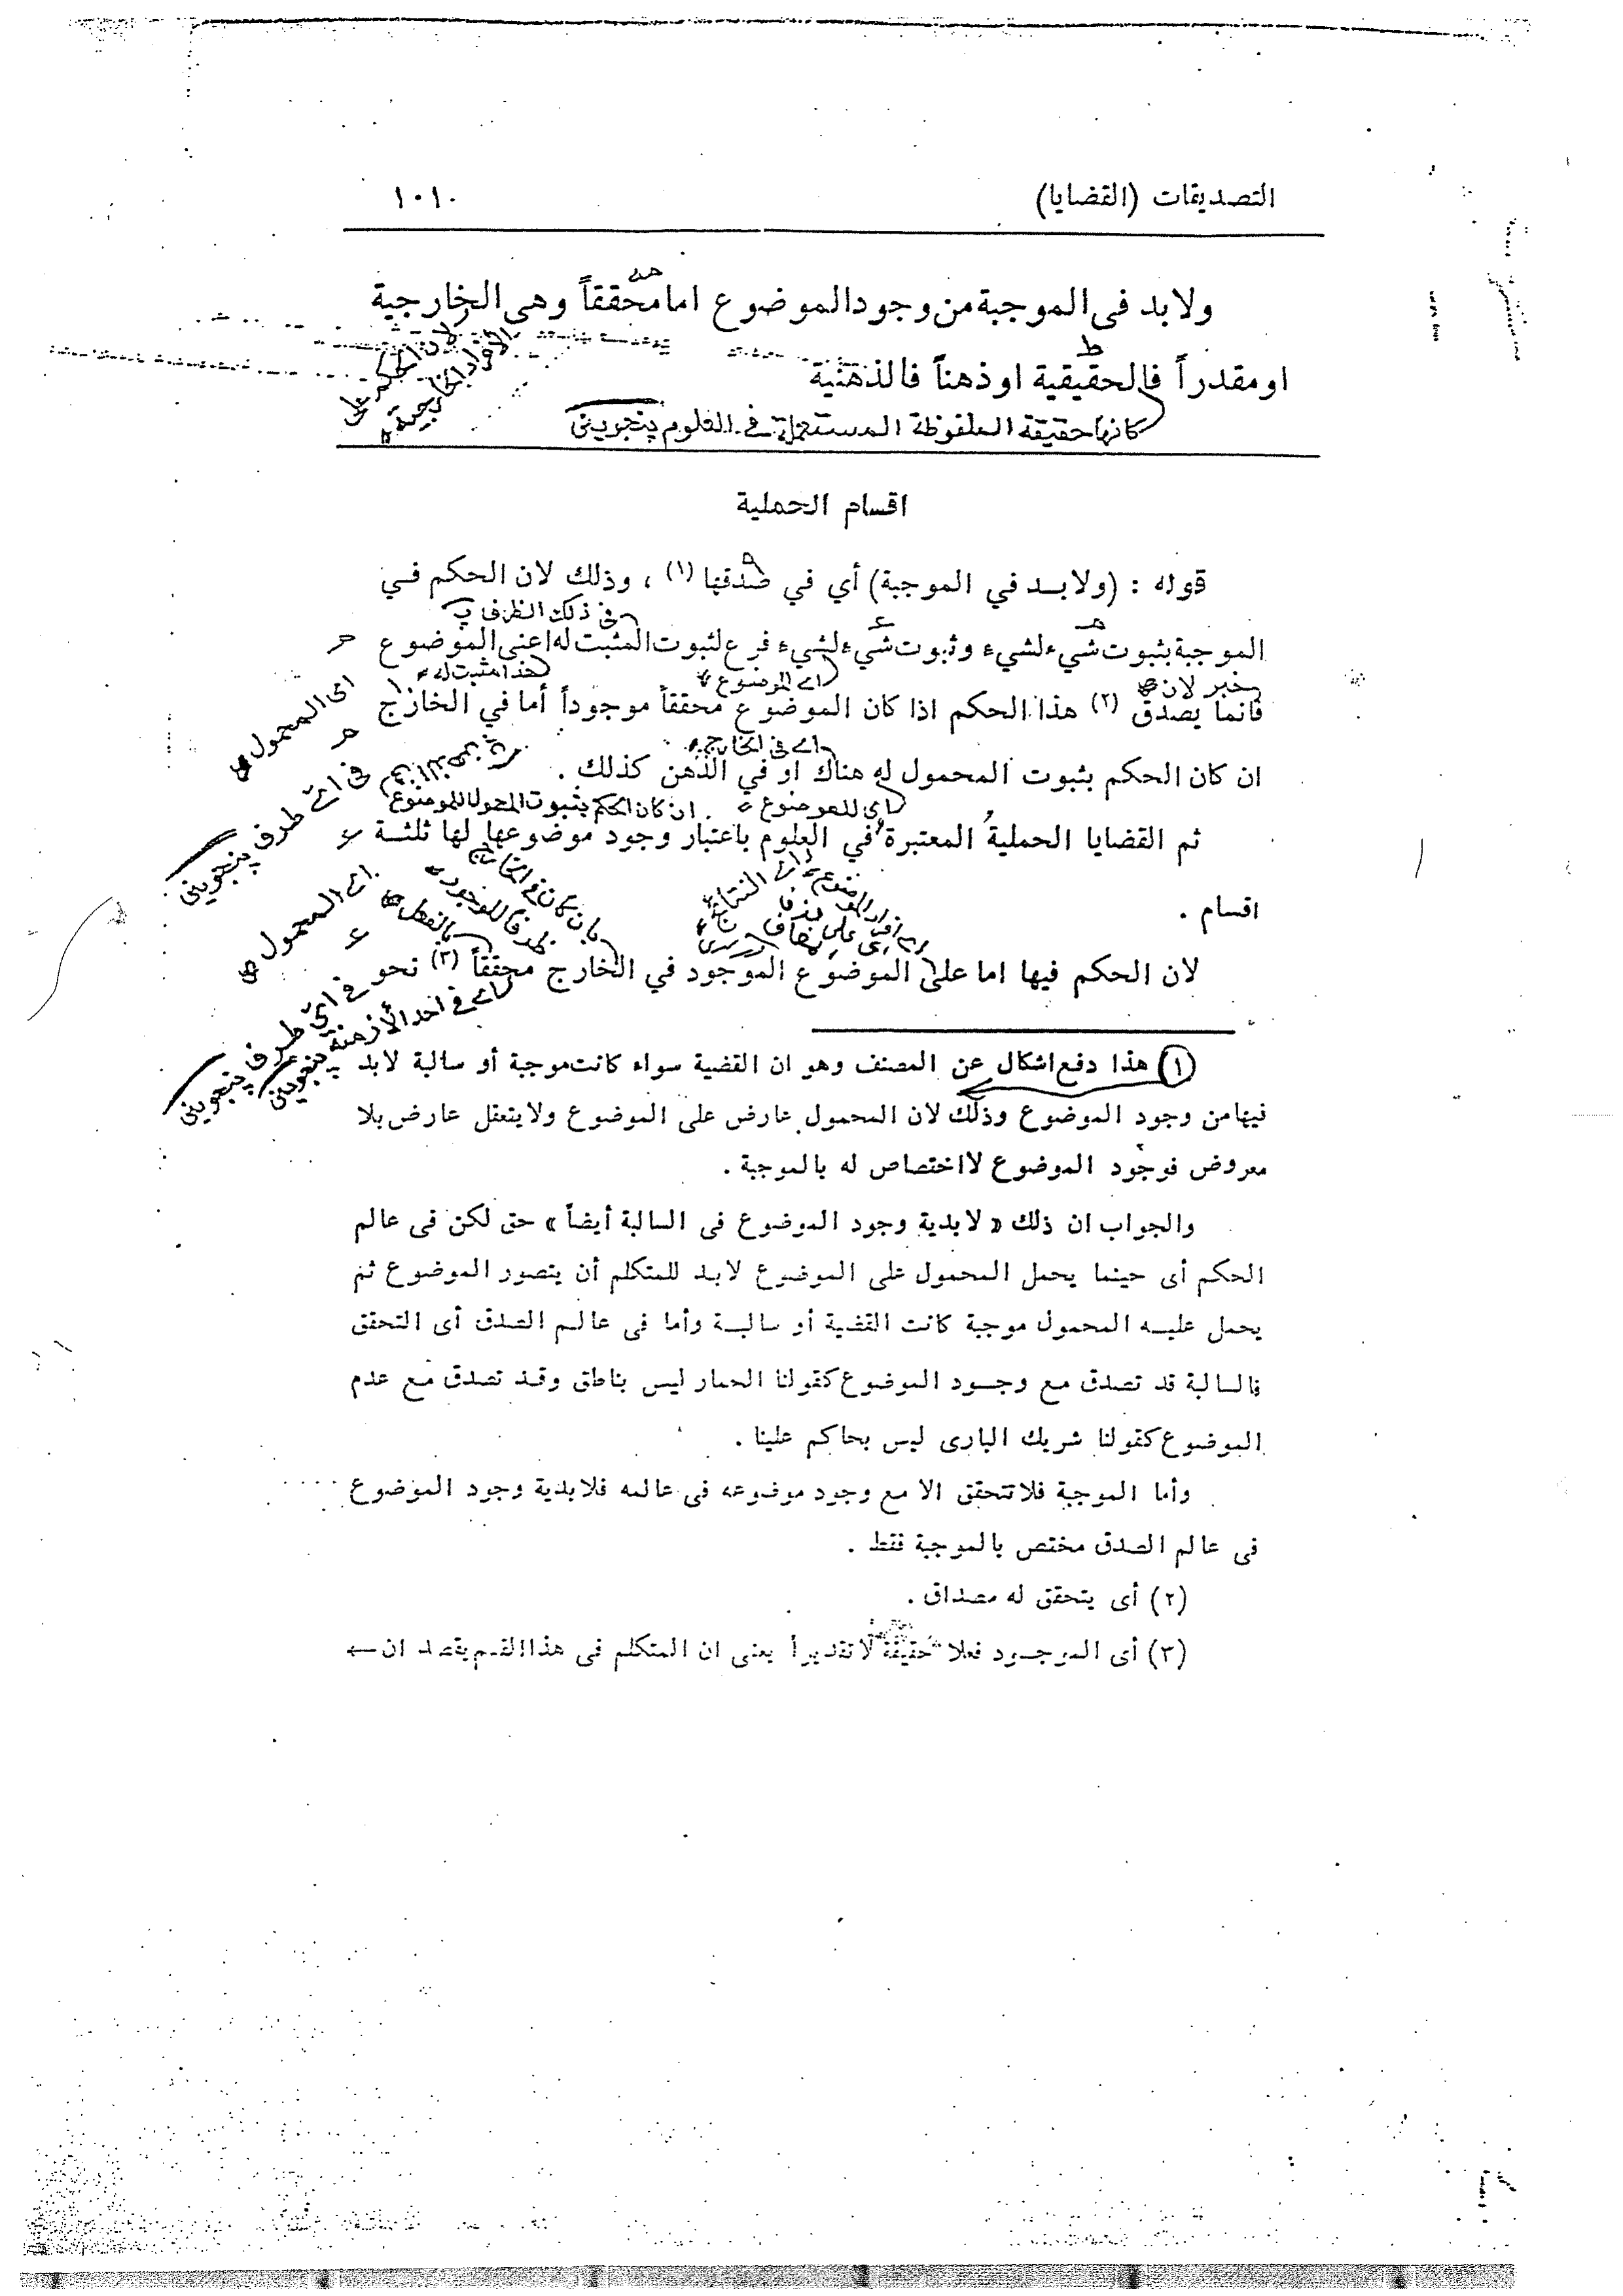 التصديقات (القضايا)
١٠١٠
ولا بد فى الموجبة من وجود الموضوع اما محققاً وهى الخارجية
او مقدراً فالحقيقية او ذهناً فالذهنية
كانها حقيقة الملفوظة المستعملة فى العلوم پنجوينى
لان الحكم على
الافراد الخارجية
اقسام الحملية
قوله : (ولابد في الموجبة) أي في صدقها (١) ، وذلك لان الحكم في
فى ذلك الظرف
الموجبة بثبوت شيء لشيء وثبوت شيء لشيء فرع لثبوت المثبت له اعنى الموضوع
خبر لان
اى الموضوع
فانما يصدق (٢) هذا الحكم اذا كان الموضوع محققاً موجوداً أما في الخارج
اى المحمول
اى فى الخارج
ان كان الحكم بثبوت المحمول له هناك او في الذهن كذلك .
اى للموضوع
ان كان الحكم بثبوت المحمول للموضوع
فى اى طرف پنجوينى
ثم القضايا الحملية المعتبرة في العلوم باعتبار وجود موضوعها لها ثلثة
اقسام .
اى المحمول
بالفعل
لان الحكم فيها اما على الموضوع الموجود في الخارج محققاً (٣) نحو
اى فى احد الأزمنة پنجوينى
فى اى طرف پنجوينى
(١) هذا دفع اشكال عن المصنف وهو ان القضية سواء كانت موجبة أو سالبة لابد
فيها من وجود الموضوع وذلك لان المحمول عارض على الموضوع ولا يتعقل عارض بلا
معروض فوجود الموضوع لا اختصاص له بالموجبة .
والجواب ان ذلك « لابدية وجود الموضوع فى السالبة أيضاً » حق لكن فى عالم
الحكم أى حينما يحمل المحمول على الموضوع لابد للمتكلم أن يتصور الموضوع ثم
يحمل عليه المحمول موجبة كانت القضية أو سالبة وأما فى عالم الصدق أى التحقق
فالسالبة قد تصدق مع وجود الموضوع كقولنا الحمار ليس بناطق وقد تصدق مع عدم
الموضوع كقولنا شريك البارى ليس بحاكم علينا .
وأما الموجبة فلا تتحقق الا مع وجود موضوعه فى عالمه فلابدية وجود الموضوع
فى عالم الصدق مختص بالموجبة فقط .
(٢) أى يتحقق له مصداق .
(٣) أى الموجود فعلا حقيقة لا تقديراً يعنى ان المتكلم فى هذا القسم يقصد ان ←